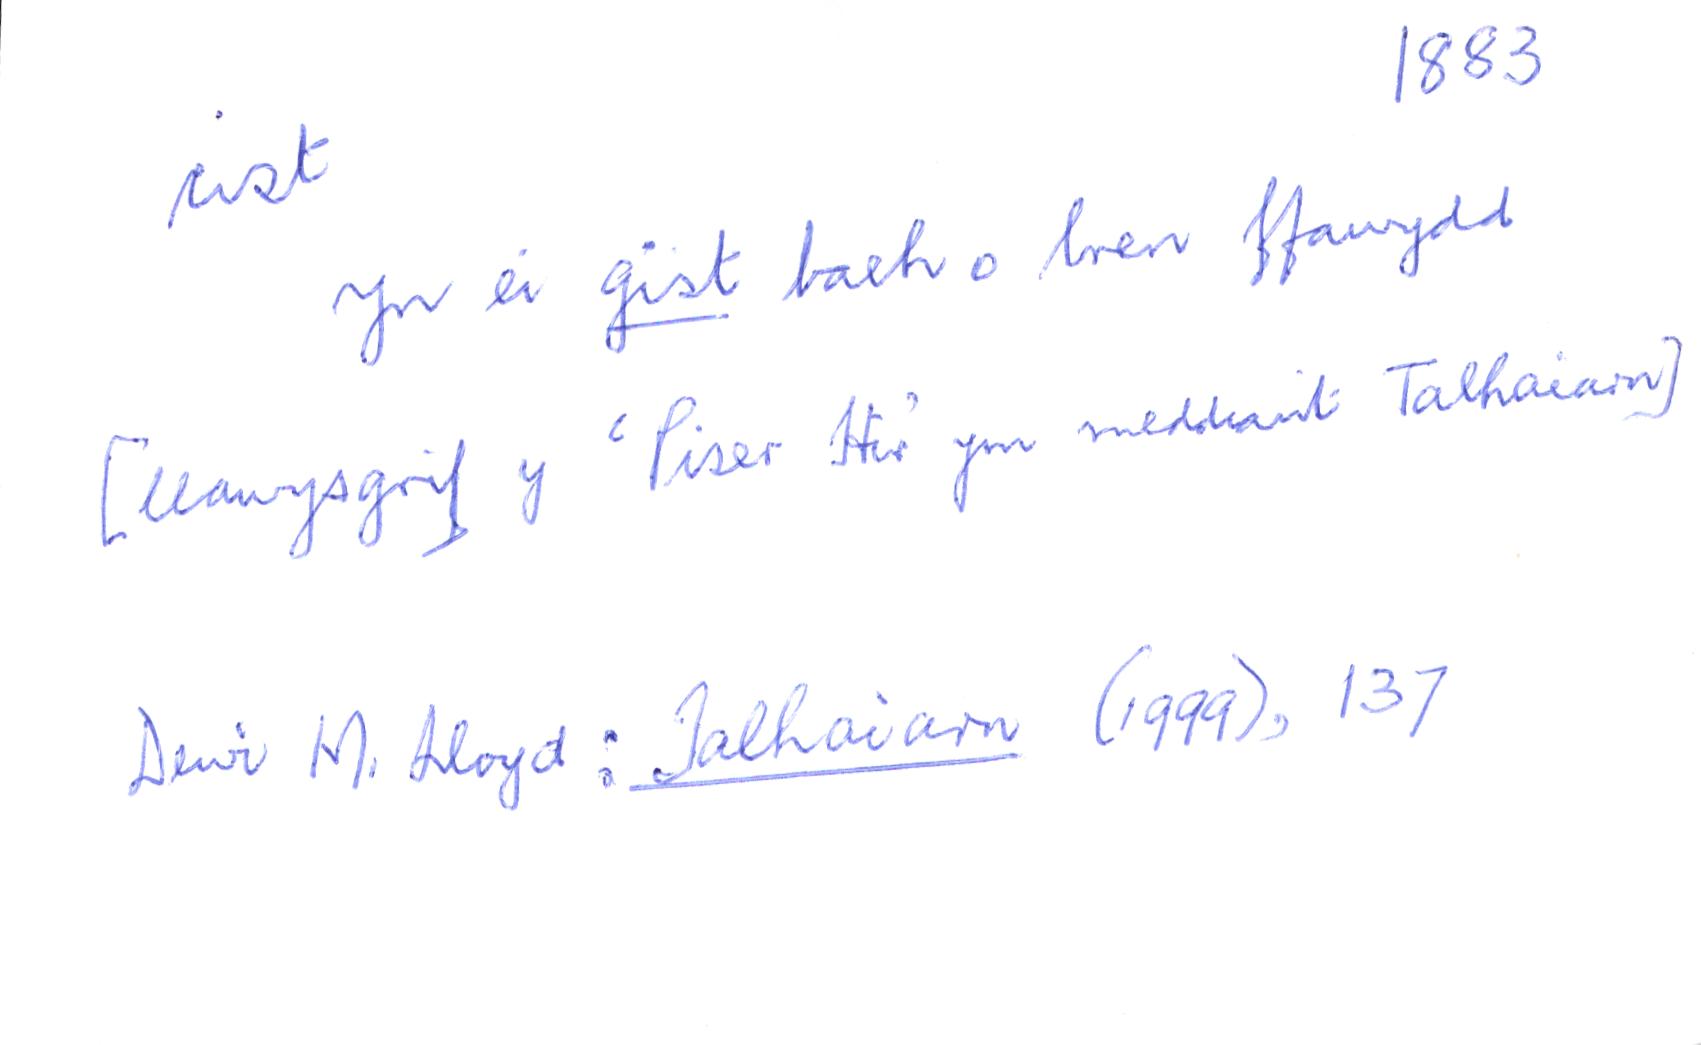 1883
cist
yn ei gist bach o bren ffawydd
[llawysgrif y 'Piser Hir' ym meddiant Talhaiarn]
Dewi M. Lloyd: Talhaiarn (1999), 137